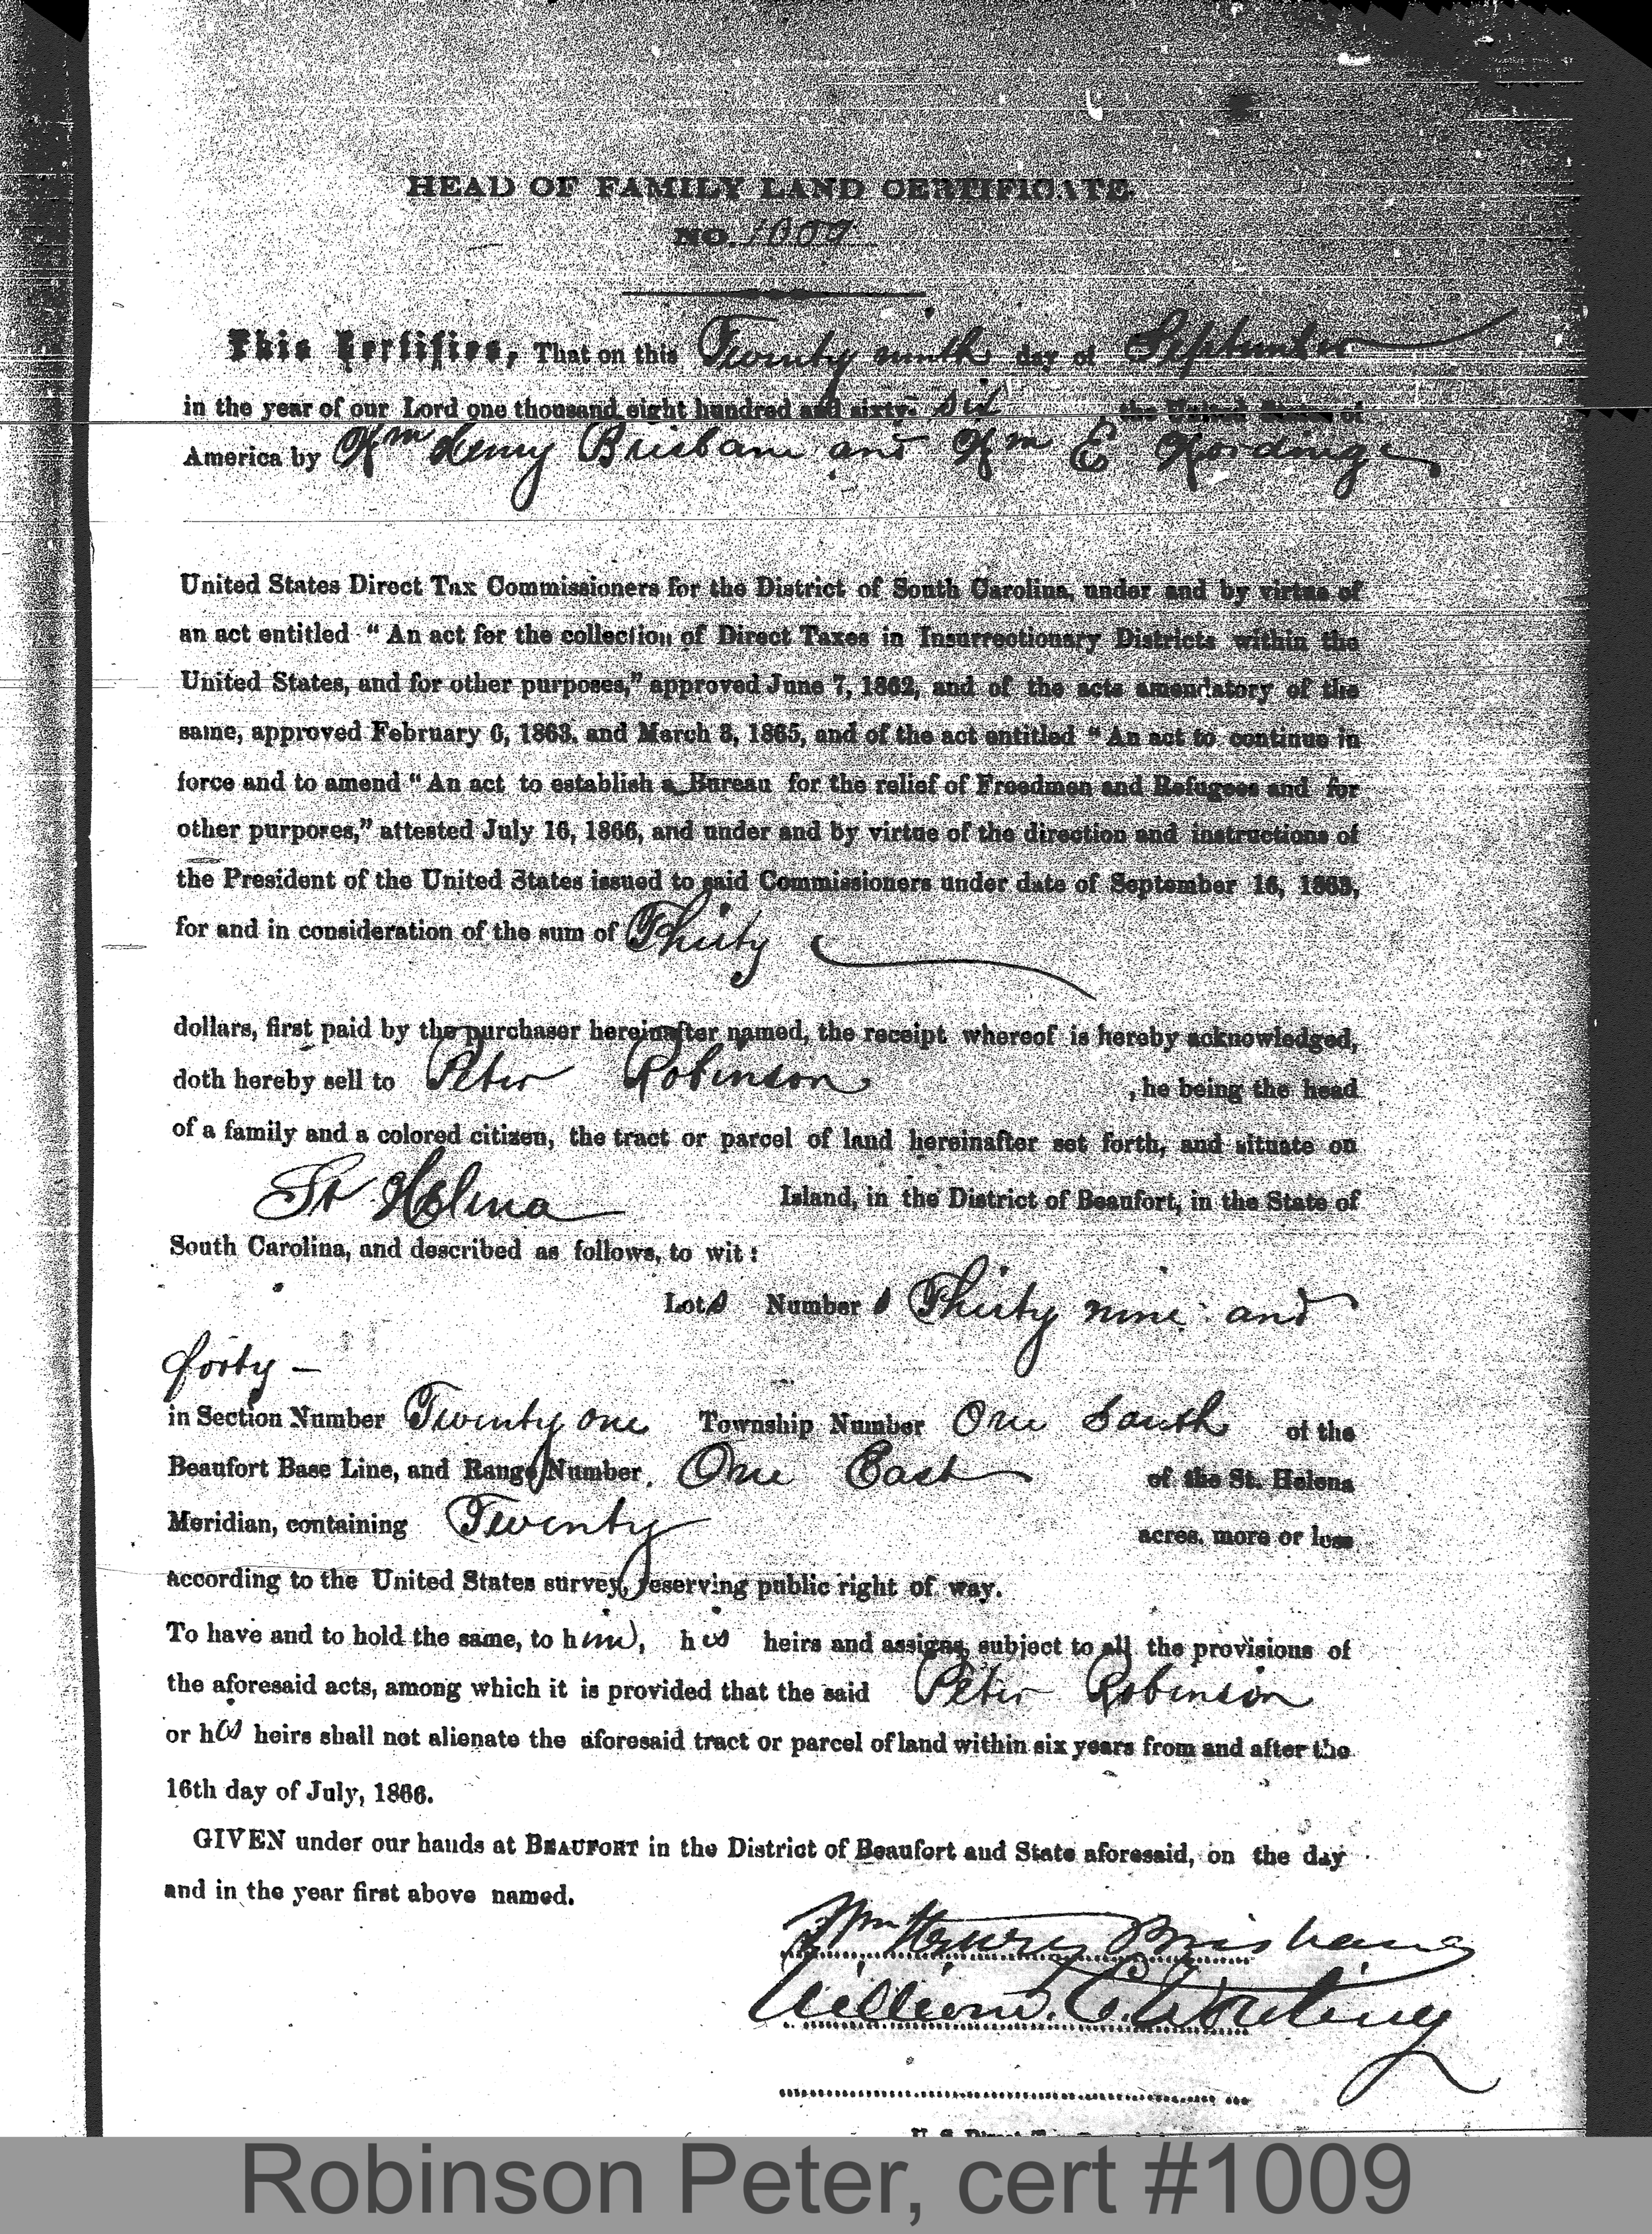 HEAD OF FAMILY LAND CERTIFICATE.
NO. 1009
This Certifies, That on this Twenty ninth day of September
in the year of our Lord one thousand eight hundred and sixty- six the United States of
America by Wm Henry Brisbane and Wm E Wording
United States Direct Tax Commissioners for the District of South Carolina, under and by virtue of
an act entitled “An act for the collection of Direct Taxes in Insurrectionary Districts within the
United States, and for other purposes,” approved June 7, 1862, and of the acts amendatory of the
same, approved February 6, 1863, and March 3, 1865, and of the act entitled “An act to continue in
force and to amend “An act to establish a Bureau for the relief of Freedmen and Refugees and for
other purpores,” attested July 16, 1866, and under and by virtue of the direction and instructions of
the President of the United States issued to said Commissioners under date of September 16, 1863,
for and in consideration of the sum of Thirty
dollars, first paid by the purchaser hereinafter named, the receipt whereof is hereby acknowledged,
doth hereby sell to Peter Robinson , he being the head
of a family and a colored citizen, the tract or parcel of land hereinafter set forth, and situate on
St Helena Island, in the District of Beaufort, in the State of
South Carolina, and described as follows, to wit:
Lots Numbers Thirty nine and
forty –
in Section Number Twenty one Township Number One South of the
Beaufort Base Line, and Range Number One East of the St. Helena
Meridian, containing Twenty acres, more or less
According to the United States survey, reserving public right of way.
To have and to hold the same, to him, his heirs and assigns, subject to all the provisions of
the aforesaid acts, among which it is provided that the said Peter Robinson
or his heirs shall not alienate the aforesaid tract or parcel of land within six years from and after the
16th day of July, 1866.
GIVEN under our hands at BEAUFORT in the District of Beaufort and State aforesaid, on the day
and in the year first above named.
Wm Henry Brisbane
William E. Wording
Robinson Peter, cert #1009